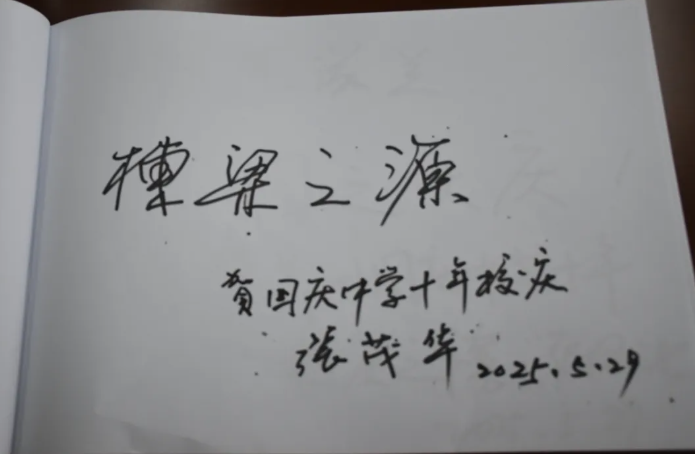 栋梁之源
贺国庆中学十年校庆
张茂华 2025.5.29